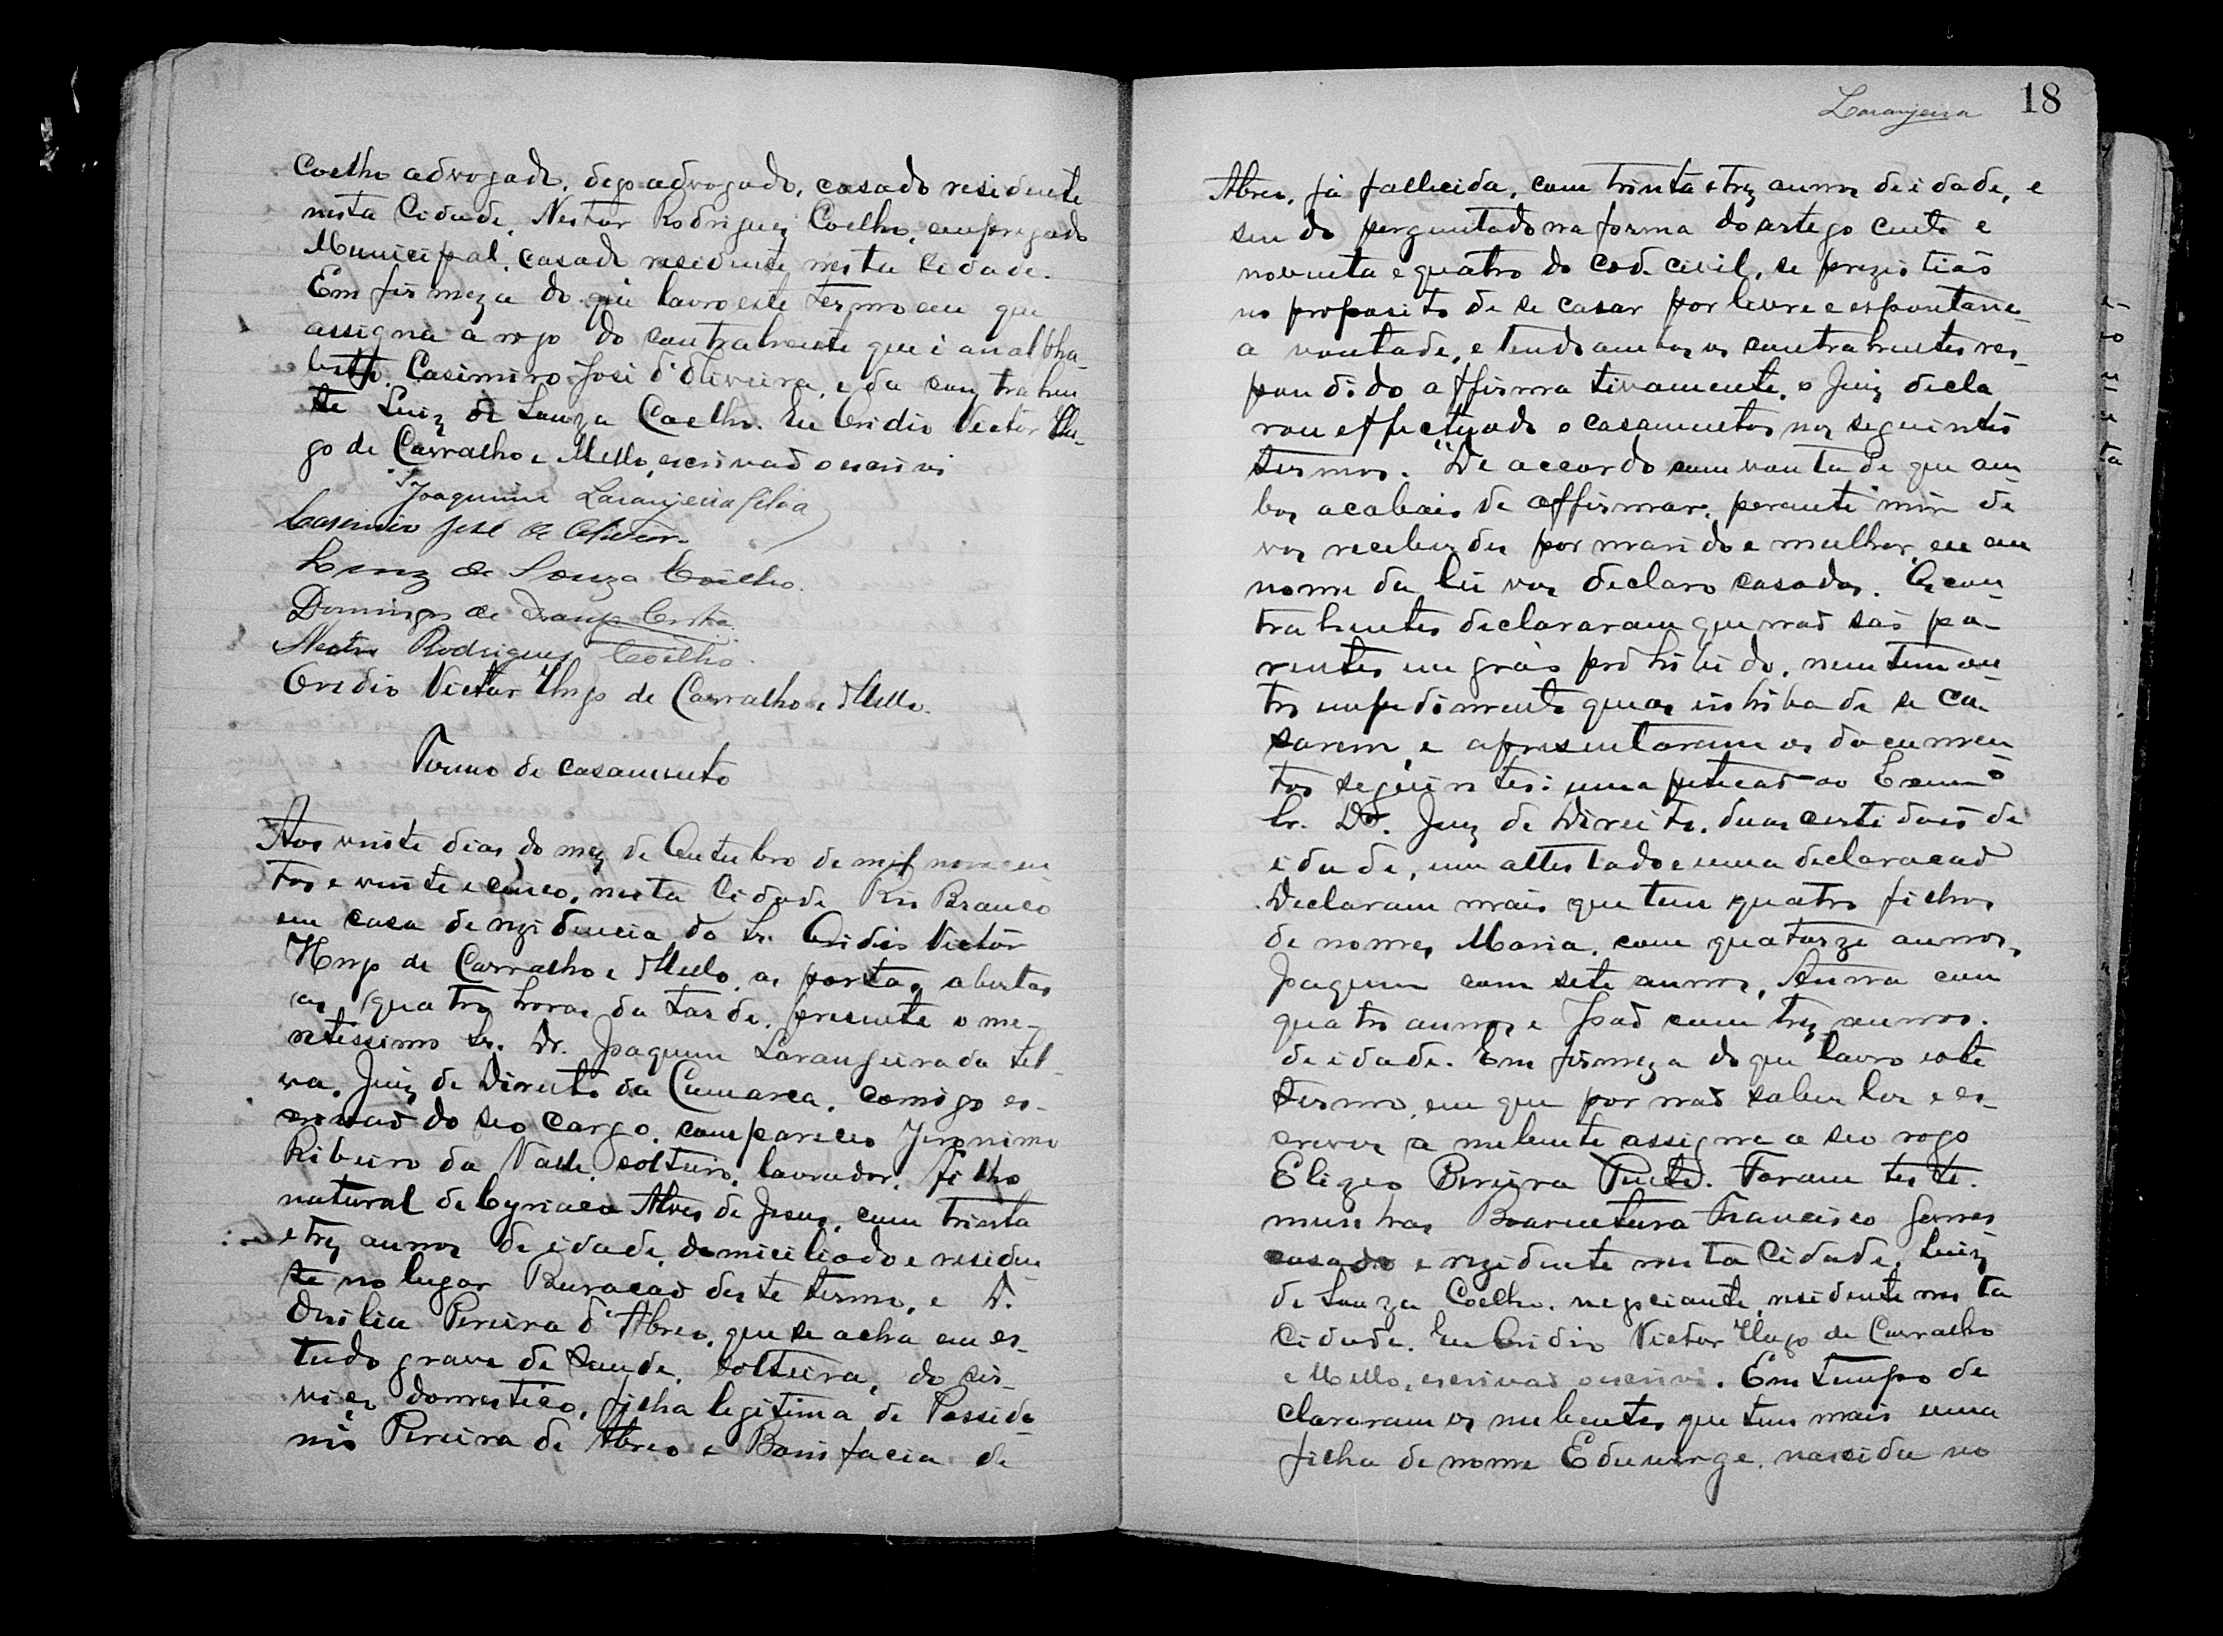 Coelho advogado, digo advogado, casado residente
nesta Cidade, Nestor Rodrigues Coelho, empregado
Municipal, casado residente nesta cidade.
Em firmeza do que lavro este termo em que
assigna a rogo do contrahente que é analpha-
betto, Casimiro José d'Oliveira, e da contrahen
te Luiz de Souza Coelho. Eu Ovidio Victor Hu-
go de Carvalho e Mello, escrivaõ o escrivi
Joaquim Laranjeira Silva
Casimiro José de Oliveira
Luiz de Souza Coelho.
Domingos de
Nestor Rodrigues Coelho.
Ovidio Victor Hugo de Carvalho e Mello.
Termo de casamento
Aos vinte dias do mez de Outubro de mil novecen
tos e vinte e cinco, nesta Cidade Rio Branco
em casa de rezidencia do Sr. Ovidio Victor
Hugo de Carvalho e Mello, as portas abertas
as quatro horas da tarde, presente o me-
retissimo Sr. Dr. Joaquim Laranjeira da Sil-
va, Juiz de Direito da Cumarca, comigo es-
crivaõ do seo cargo, compareceo Jeronimo
Ribeiro da Valle, solteiro, lavrador, filho
natural de Cyriaca Alves de Jesus, com trinta
e trez annos de idade, domiciliado e residen
te no lugar Buracaõ deste termo, e D.
Pereira d'Abreo, que se acha em es-
tado grave de saude, solteira, do ser-
viço domestico, filha legitima de Possido
nio Pereira de Abreo e Bonifacia de
Laranjeira 18
Abreo, já fallecida, com trinta e trez annos de idade, e
sendo perguntado na forma do artego cento e
noventa e quatro do cod. civil, se prezistiaõ
no proposito de se casar por livre e espontane-
a vontade, e tendo ambos os contrahentes res-
pondido affirmativamente, o Juiz decla
rou effectuado o casamentos nos seguintes
termos. "De accordo com vontade que am
bos acabais de affirmar, perente mim de
vos receberdes por marido e mulher, eu em
nome da lei vos declaro casados. Os con-
trahentes declararam que naõ saõ pa-
rentes em gráo prohibido, nem tem ou-
tro impedimento que os inhiba de se ca-
sarem, e apresentaram os documen
tos seguintes: uma peticaõ ao Exmo
Sr. Dr. Juiz de Direito, duas certidoes de
idade, um attestado e uma declaracaõ
Declaram mais que tem quatro filhos
de nomes, Maria, com quatorze annos,
Joaquim com sete annos, Anna com
quatro annos e Joaõ com trez annos.
de idade. Em firmeza do que lavro este
termo, em que por naõ saber ler e es-
crever a nubente assigna a seo rogo
Elizeo Pereira Foram teste-
munhas, Boaventura Francisco Gomes
casado e rezidente nesta Cidade, Luiz
de Souza Coelho, negociante, residente nesta
Cidade. Eu Ovidio Victor Hugo de Carvalho
e Mello, escrivaõ o escrivi. Em tempo de
clararam os nubentes que tem mais uma
filha de nome Eduvirge, nascida no